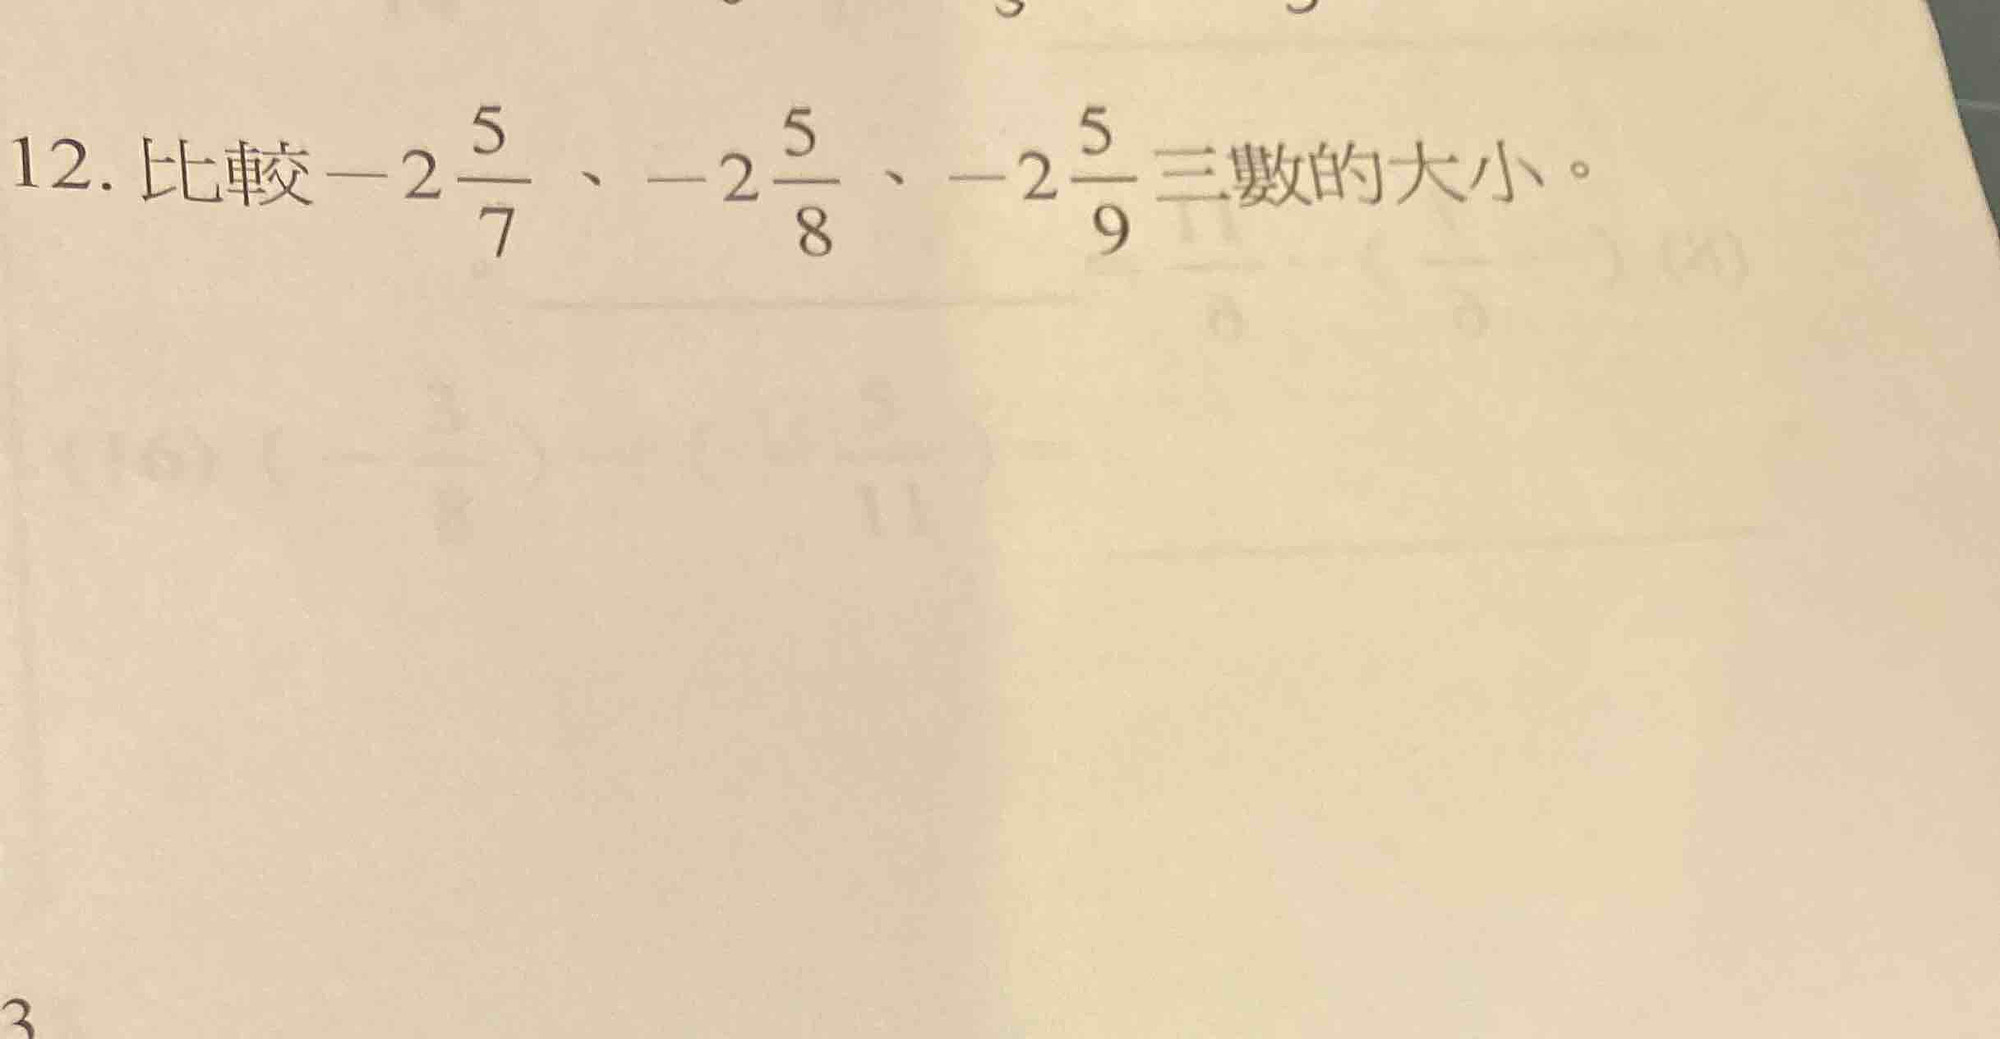 12. 比較－2 5/7、－2 5/8、－2 5/9 三數的大小。
3